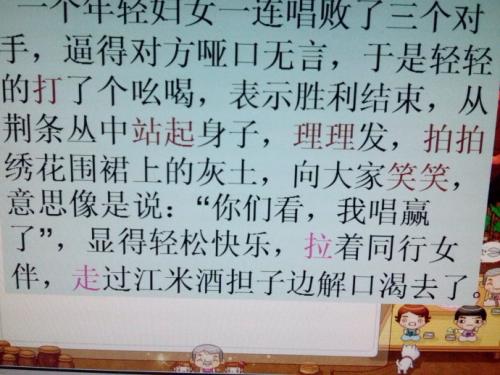 一个年轻妇女一连唱败了三个对
手，逼得对方哑口无言，于是轻轻
的打了个吆喝，表示胜利结束，从
荆条丛中站起身子，理理发，拍拍
绣花围裙上的灰土，向大家笑笑，
意思像是说：“你们看，我唱赢
了”，显得轻松快乐，拉着同行女
伴，走过江米酒担子边解口渴去了。